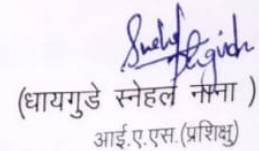 (धायगुडे स्नेहल नाना )
आई.ए.एस.(प्रशिक्षु)